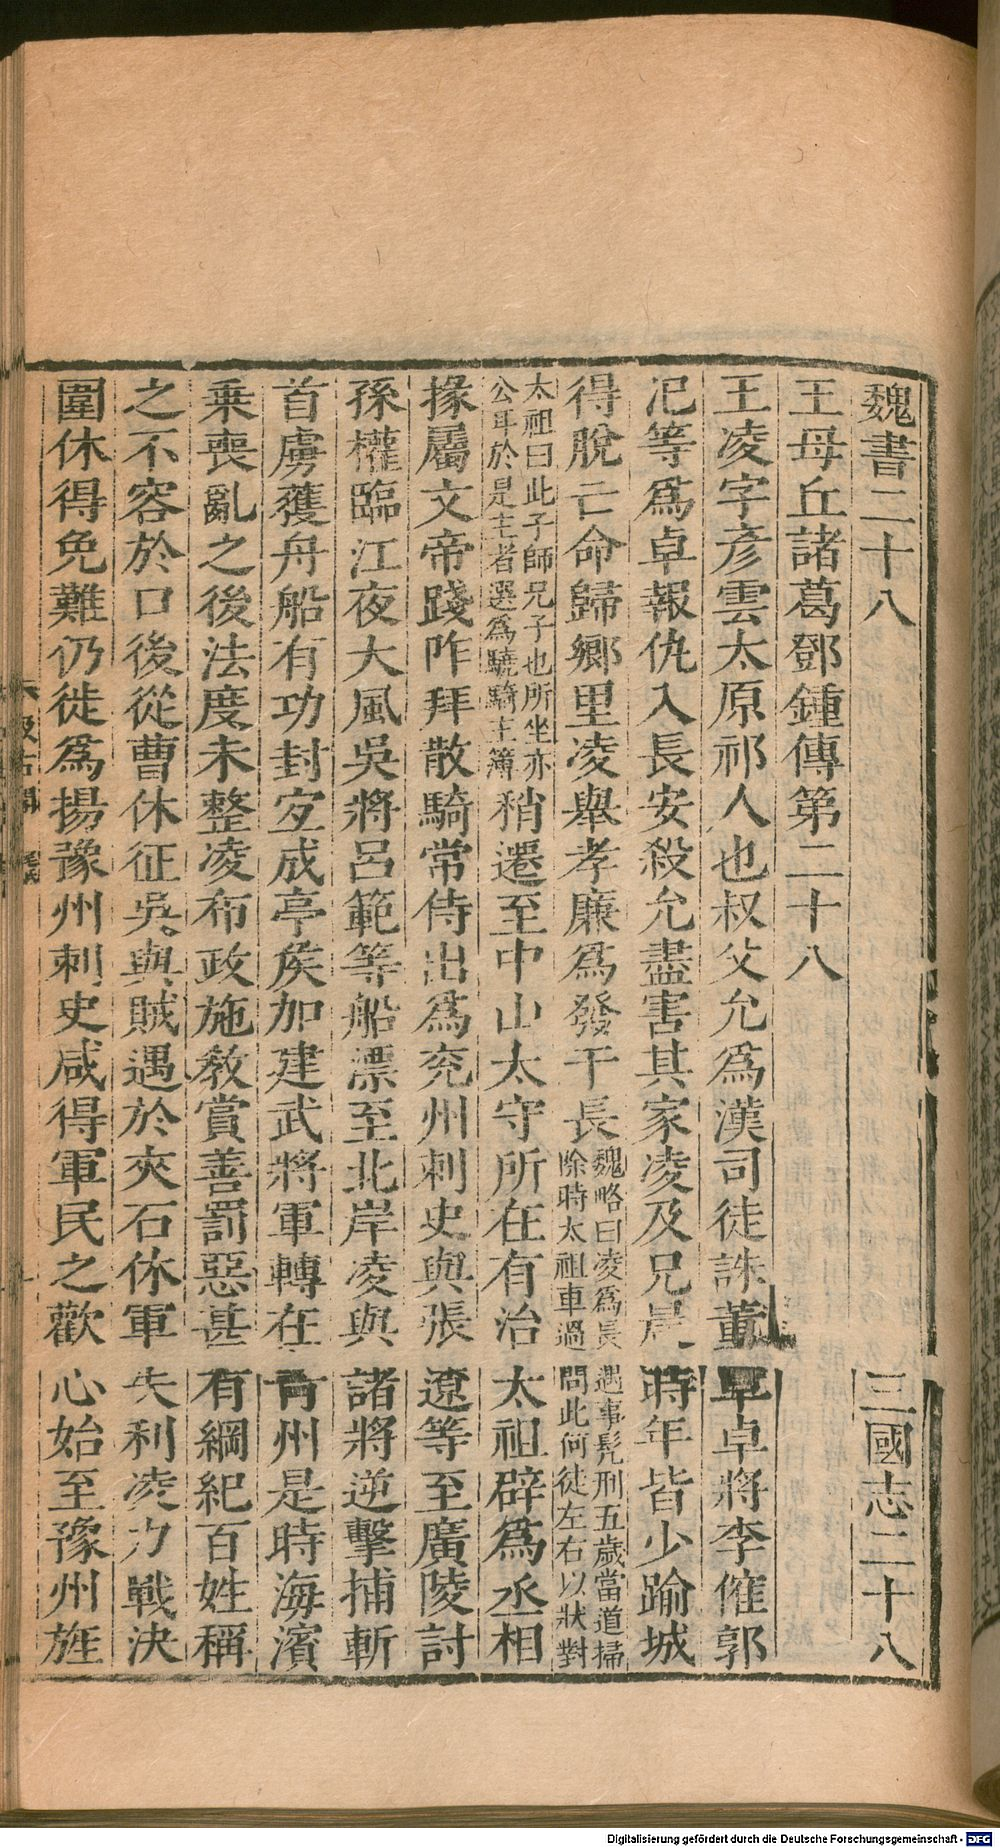 魏書二十八　三國志二十八
王毋丘諸葛鄧鍾傳第二十八
王凌字彥雲太原祁人也叔父允爲漢司徒誅董卓卓將李傕郭
汜等爲卓報仇入長安殺允盡害其家凌及兄晨時年皆少踰城
得脫亡命歸鄉里凌舉孝廉爲發干長魏略曰凌爲長遇事髡刑五歲當道掃
除時太祖車過問此何徒左右以狀對
太祖曰此子師兄子也所坐亦
公耳於是主者選爲驍騎主簿稍遷至中山太守所在有治太祖辟爲丞相
掾屬文帝踐阼拜散騎常侍出爲兖州刺史與張遼等至廣陵討
孫權臨江夜大風吳將呂範等船漂至北岸凌與諸將逆擊捕斬
首虜獲舟船有功封宜成亭矦加建武將軍轉在青州是時海濱
乗喪亂之後法度未整凌布政施敎賞善罰惡甚有綱紀百姓稱
之不容於口後從曹休征吳與賊遇於夾石休軍失利凌力戰決
圍休得免難仍徙爲揚豫州刺史咸得軍民之歡心始至豫州旌